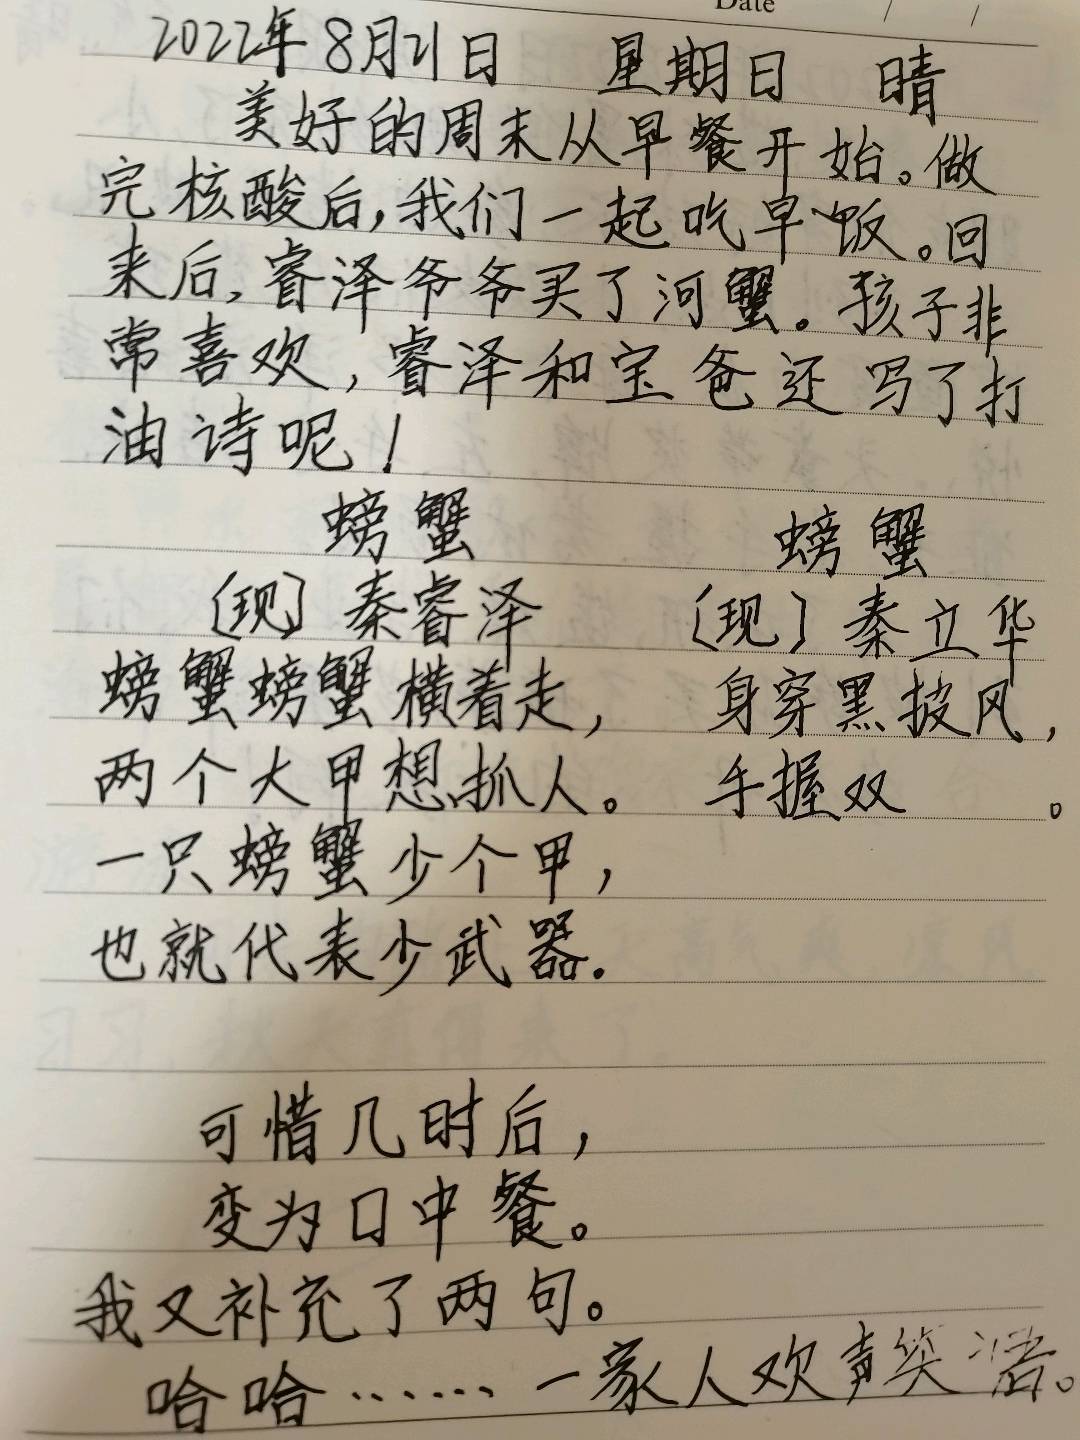 Date / /
2022年8月21日 星期日 晴
美好的周末从早餐开始。做
完核酸后,我们一起吃早饭。回
来后,睿泽爷爷买了河蟹。孩子非
常喜欢,睿泽和宝爸还写了打
油诗呢!
螃蟹 螃蟹
〔现〕秦睿泽 〔现〕秦立华
螃蟹螃蟹横着走, 身穿黑披风,
两个大甲想抓人。 手握双 。
一只螃蟹少个甲,
也就代表少武器.
可惜几时后,
变为口中餐。
我又补充了两句。
哈哈……一家人欢声笑语。